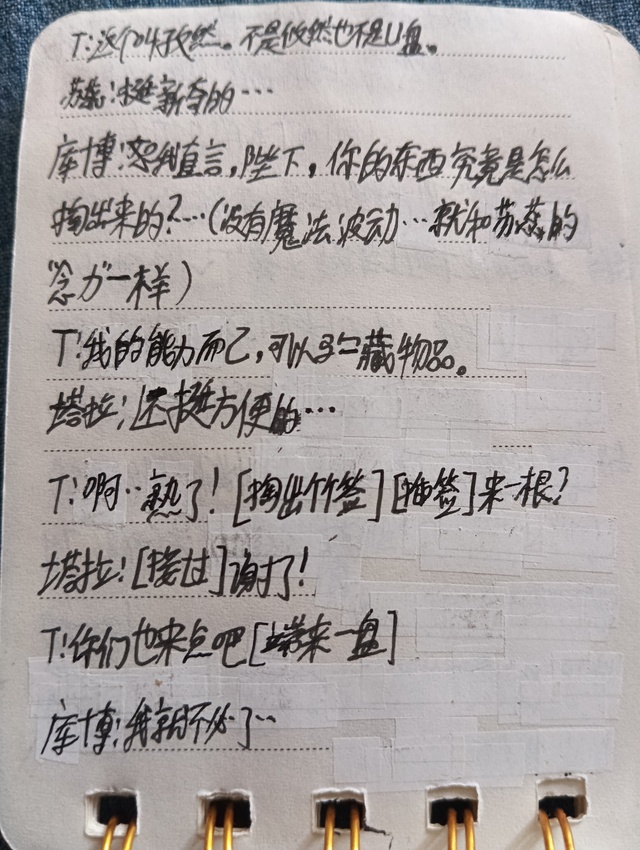 T:这个叫孜然。不是攸然也不是U盘。
苏蕊:挺新奇的…
库博:恕我直言,陛下,你的东西究竟是怎么
掏出来的?…(没有魔法波动…就和苏蕊的
念力一样)
T:我的能力而已,可以 藏物品。
塔拉:还挺方便的…
T:啊‥熟了![掏出竹签][抽签]来一根?
塔拉:[接过]谢了!
T:你们也来点吧[端来一盘]
库博:我就不必了‥